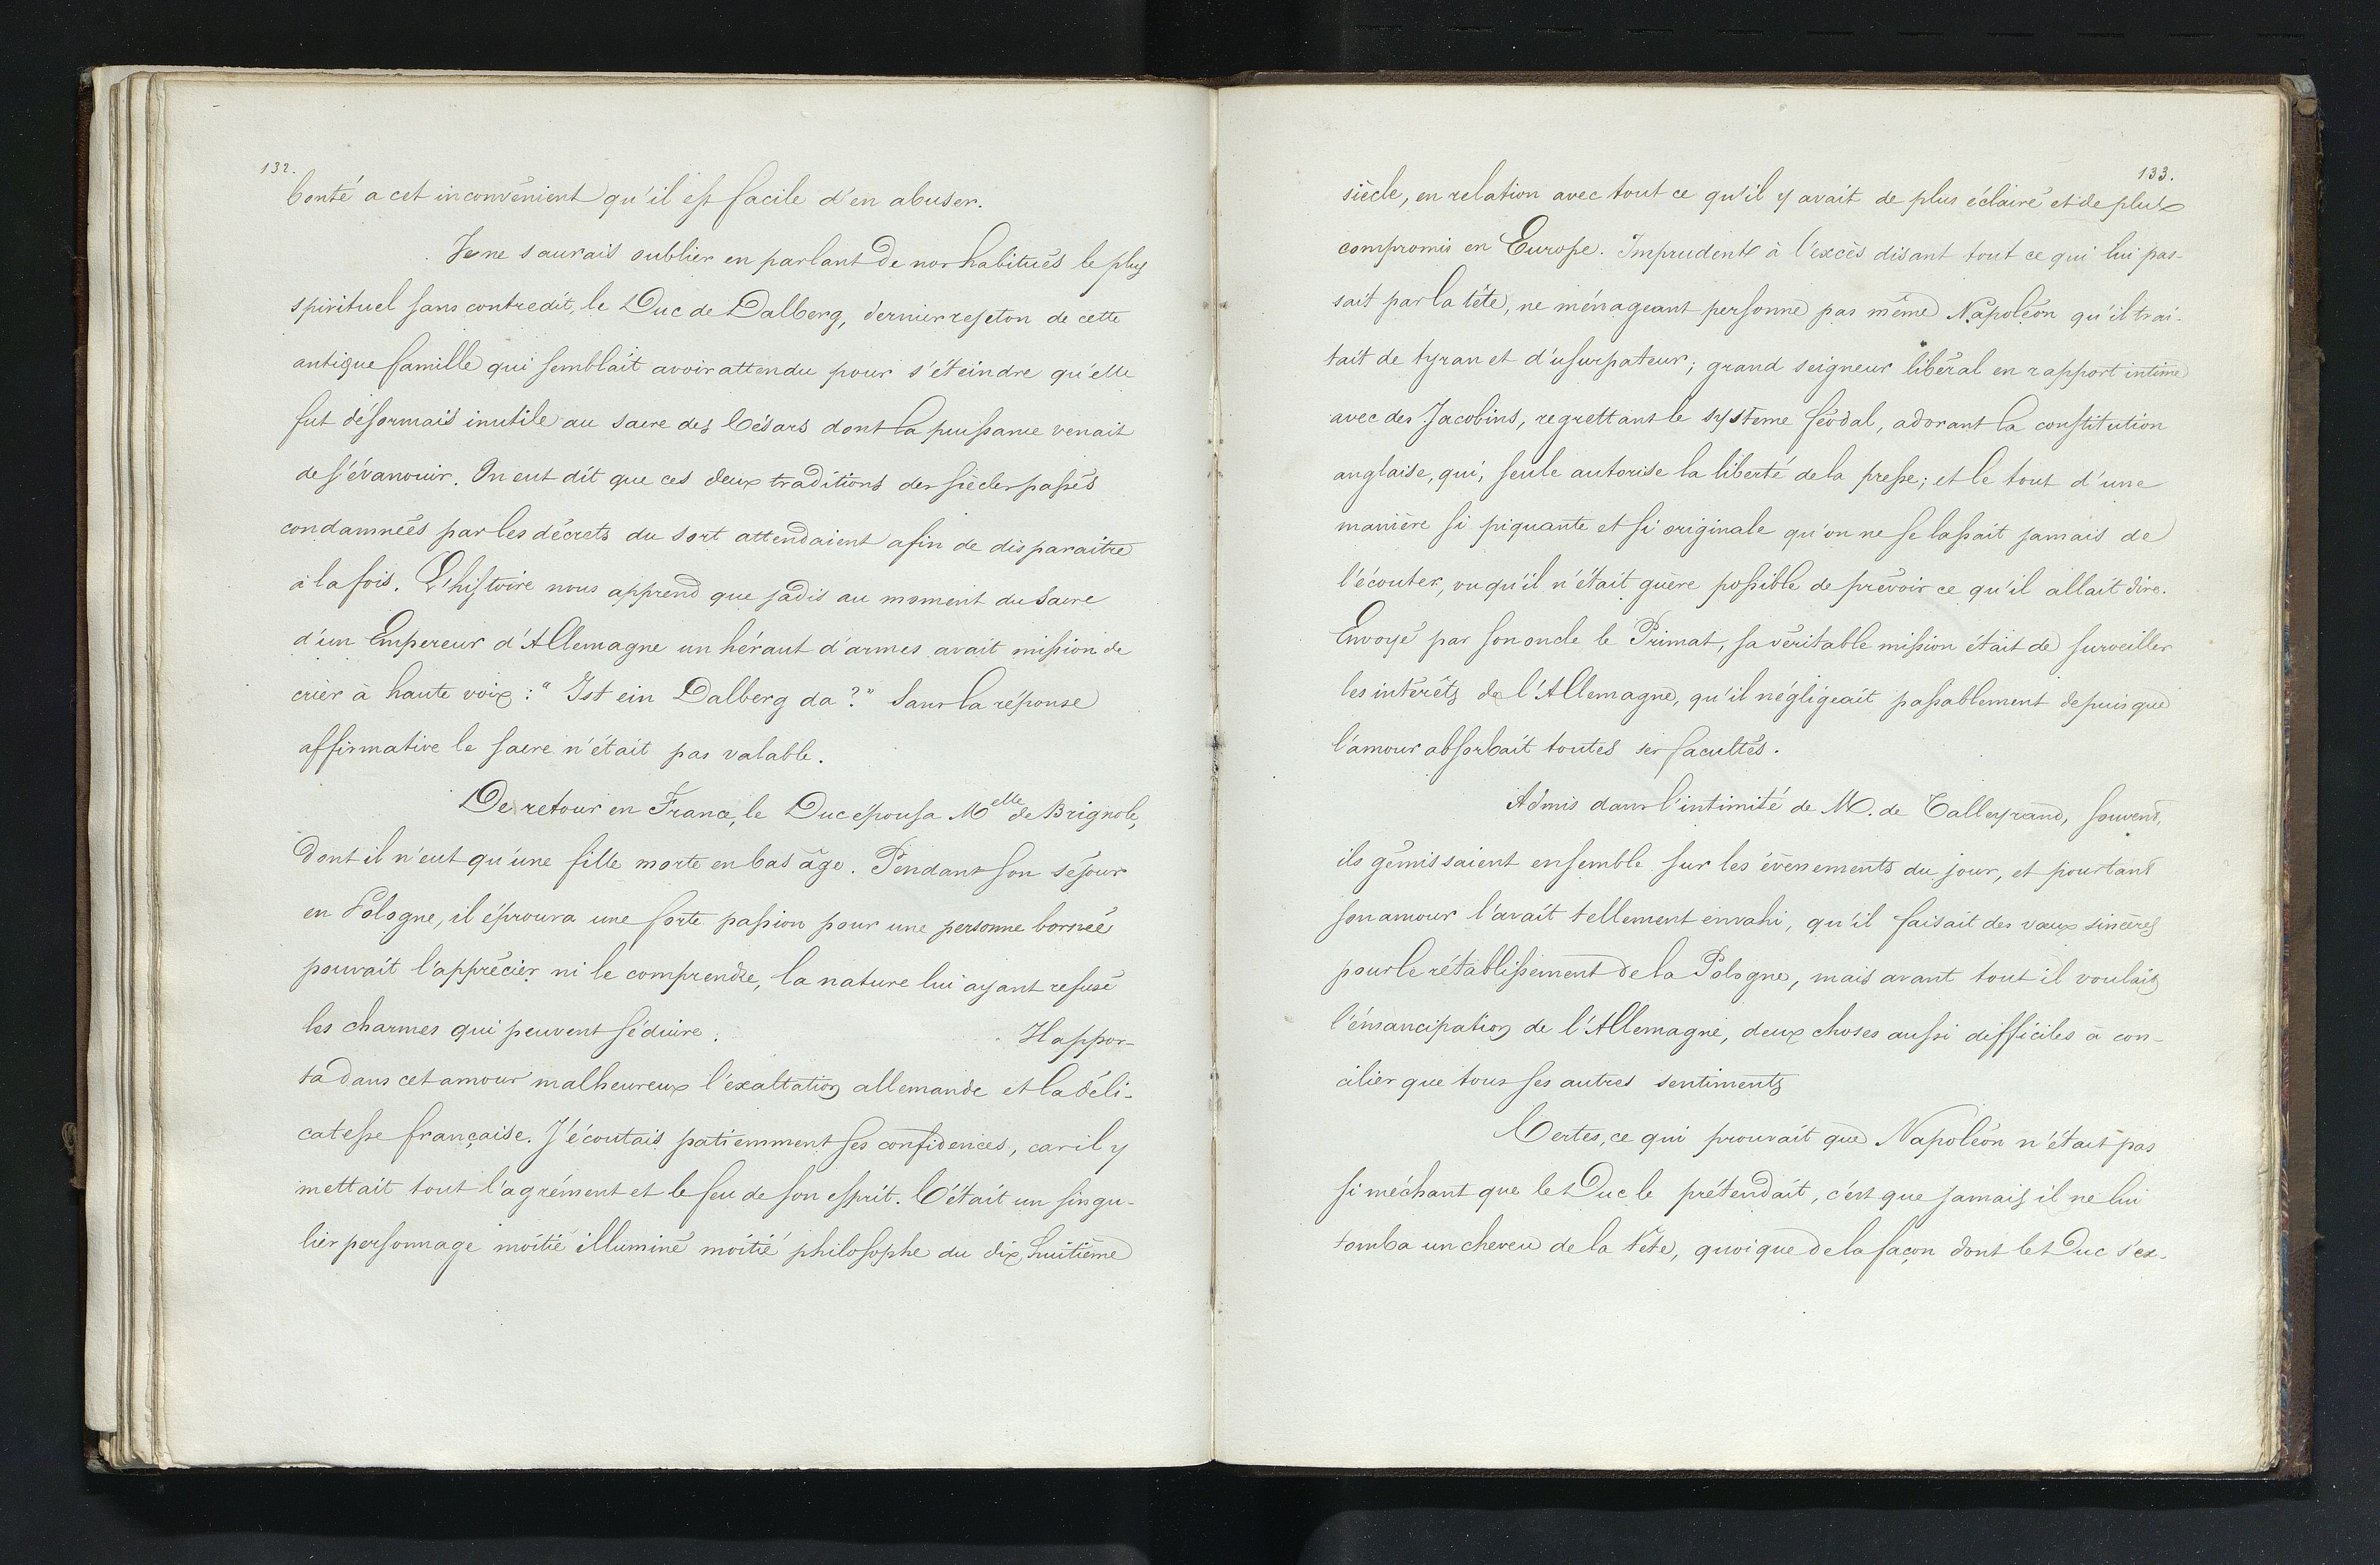 132.
bonté a cet inconvénient qu'il est facile d'en abuser.
Je ne saurais oublier en parlant de nos habitués le plus
spirituel sans contredit, le Duc de Dalberg, dernier rejeton de cette
antique famille qui semblait avoir attendu pour s'éteindre qu'elle
fut désormais inutile au sacre des Césars dont la puissance venait
de s'évanouir. On eut dit que ces deux traditions des siècles passés
condamnées par les décrets du sort attendaient afin de disparaître
à la fois. L'histoire nous apprend que jadis au moment du Sacre
d'un Empereur d'Allemagne un héraut d'armes avait mission de
crier à haute voix : " Ist ein Dalberg da ? " Sans la réponse
affirmative le sacre n'était pas valable.
De retour en France, le Duc épousa Melle de Brignole,
dont il n'eut qu'une fille morte en bas âge. Pendant son séjour
en Pologne, il éprouva une forte passion pour une personne bornée
pouvait l'apprécier ni le comprendre, la nature lui ayant refusé
les charmes qui peuvent séduire. Il appor-
ta dans cet amour malheureux l'exaltation allemande et la déli-
catesse française. J'écoutais patiemment ses confidences, car il y
mettait tout l'agrément et le feu de son esprit. C'était un singu-
lier personnage moitié illuminé moitié philosophe du dix huitième
133.
siècle, en relation avec tout ce qu'il y avait de plus éclairé et de plus
compromis en Europe. Imprudent à l'excès disant tout ce qui lui pas-
sait par la tête, ne ménageant personne pas même Napoléon qu'il trai-
tait de tyran et d'usurpateur ; grand seigneur libéral en rapport intime
avec des Jacobins, regrettant le systeme féodal, adorant la constitution
anglaise, qui, seule autorise la liberté de la presse ; et le tout d'une
manière si piquante et si originale qu'on ne se lassait jamais de
l'écouter, vu qu'il n'était guère possible de prévoir ce qu'il allait dire.
Envoyé par son oncle le Primat, sa véritable mission était de surveiller
les intérêts de l'Allemagne, qu'il négligeait passablement depuis que
l'amour absorbait toutes ses facultés.
Admis dans l'intimité de M. de Talleyrand, souvent,
ils gémissaient ensemble sur les évenements du jour, et pourtant
son amour l'avait tellement envahi, qu'il faisait des vœux sincères
pour le rétablissement de la Pologne, mais avant tout il voulait
l'émancipation de l'Allemagne, deux choses aussi difficiles à con-
cilier que tous ses autres sentiments
Certes, ce qui prouvait que Napoléon n'était pas
si méchant que le Duc le prétendait, c'est que jamais il ne lui
tomba un cheveu de la tête, quoique de la façon dont le Duc s'ex-